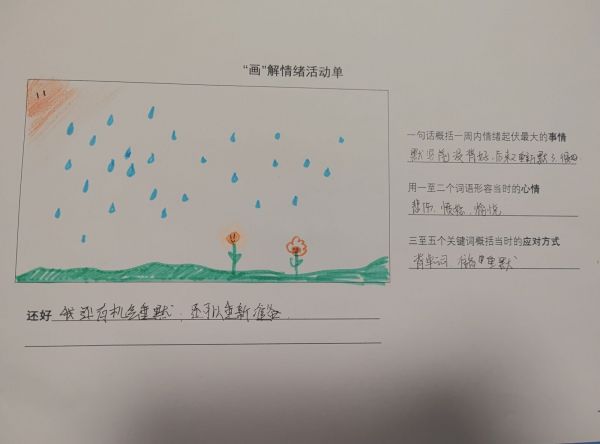 “画”解情绪活动单
一句话概括一周内情绪起伏最大的事情
默写前没背好,后来重新默了
用一至二个词语形容当时的心情
悲伤、愉悦
三至五个关键词概括当时的应对方式
背单词 重默
还好 我还有机会重默,还可以重新准备